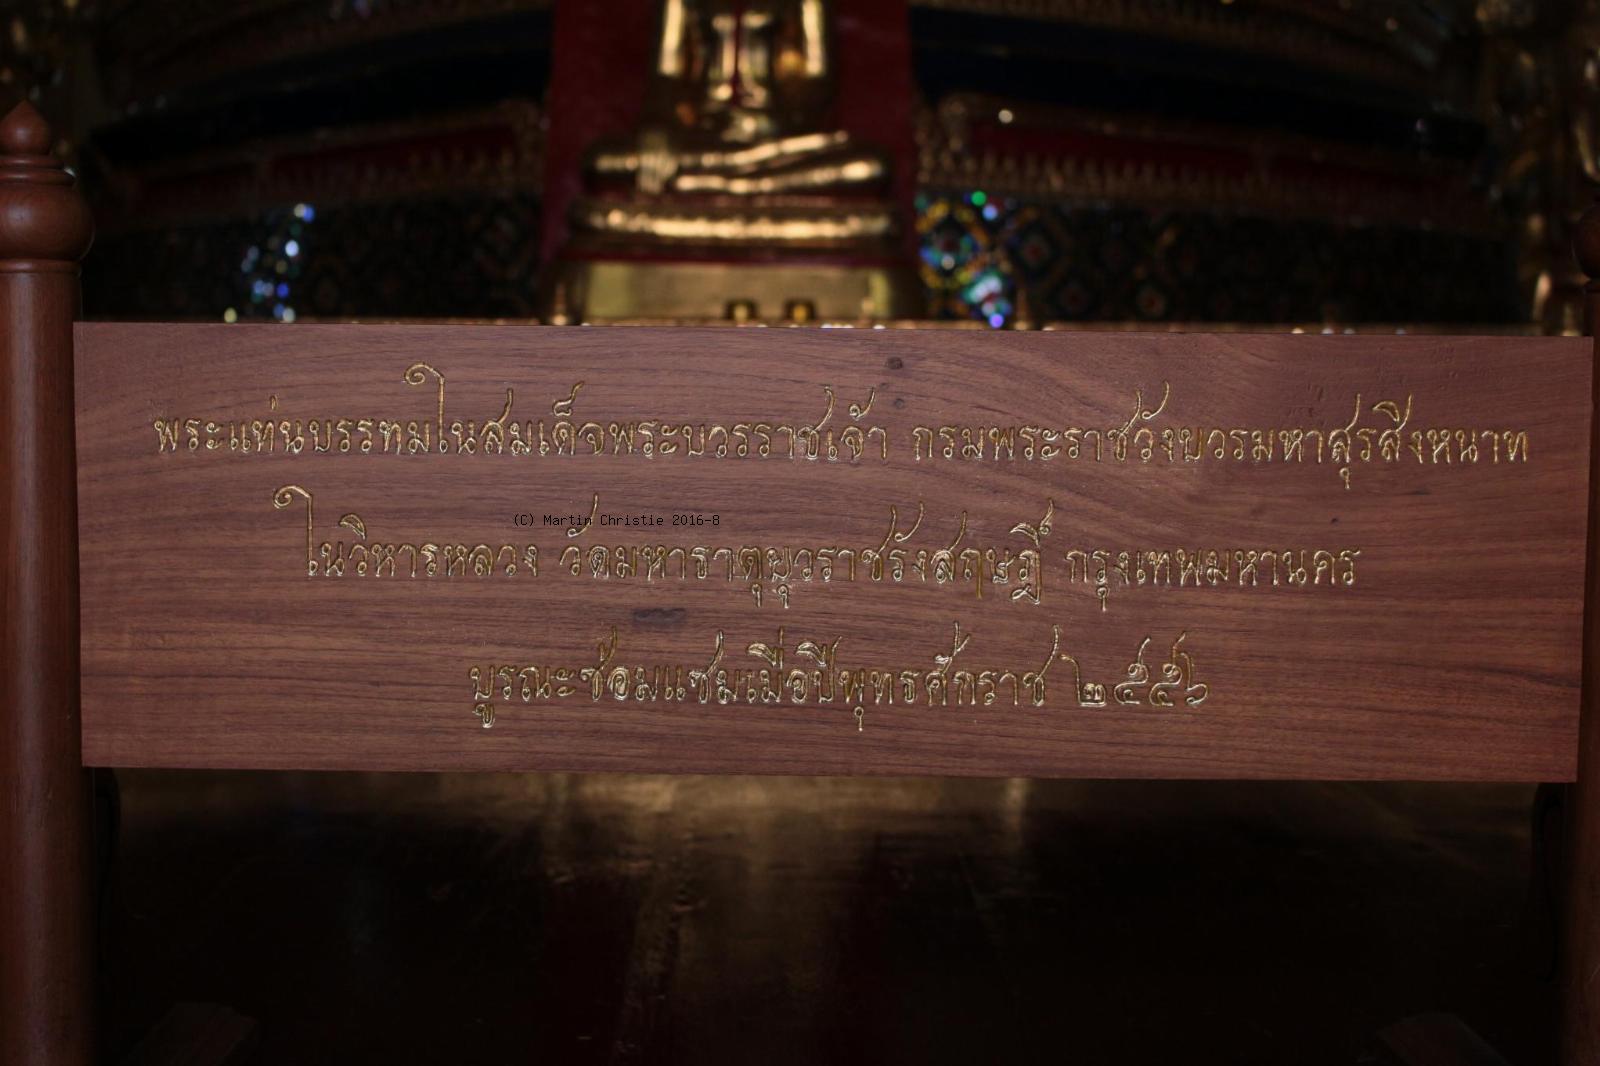 พระแท่นบรรทมในสมเด็จพระบวรราชเจ้า กรมพระราชวังบวรมหาสุรสิงหนาท
ในวิหารหลวง วัดมหาธาตุยุวราชรังสฤษฎิ์ กรุงเทพมหานคร
(C) Martin Christie 2016-8
บูรณะซ่อมแซมเมื่อปีพุทธศักราช ๒๕๕๖